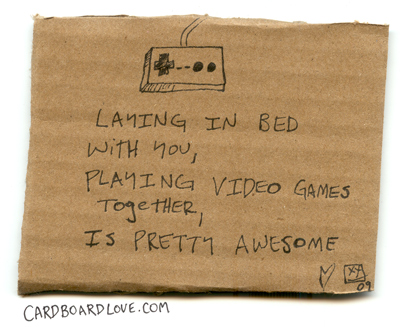 LAYING IN BED
WITH YOU,
PLAYING VIDEO GAMES
TOGETHER,
IS PRETTY AWESOME
09
CARDBOARDLOVE.COM